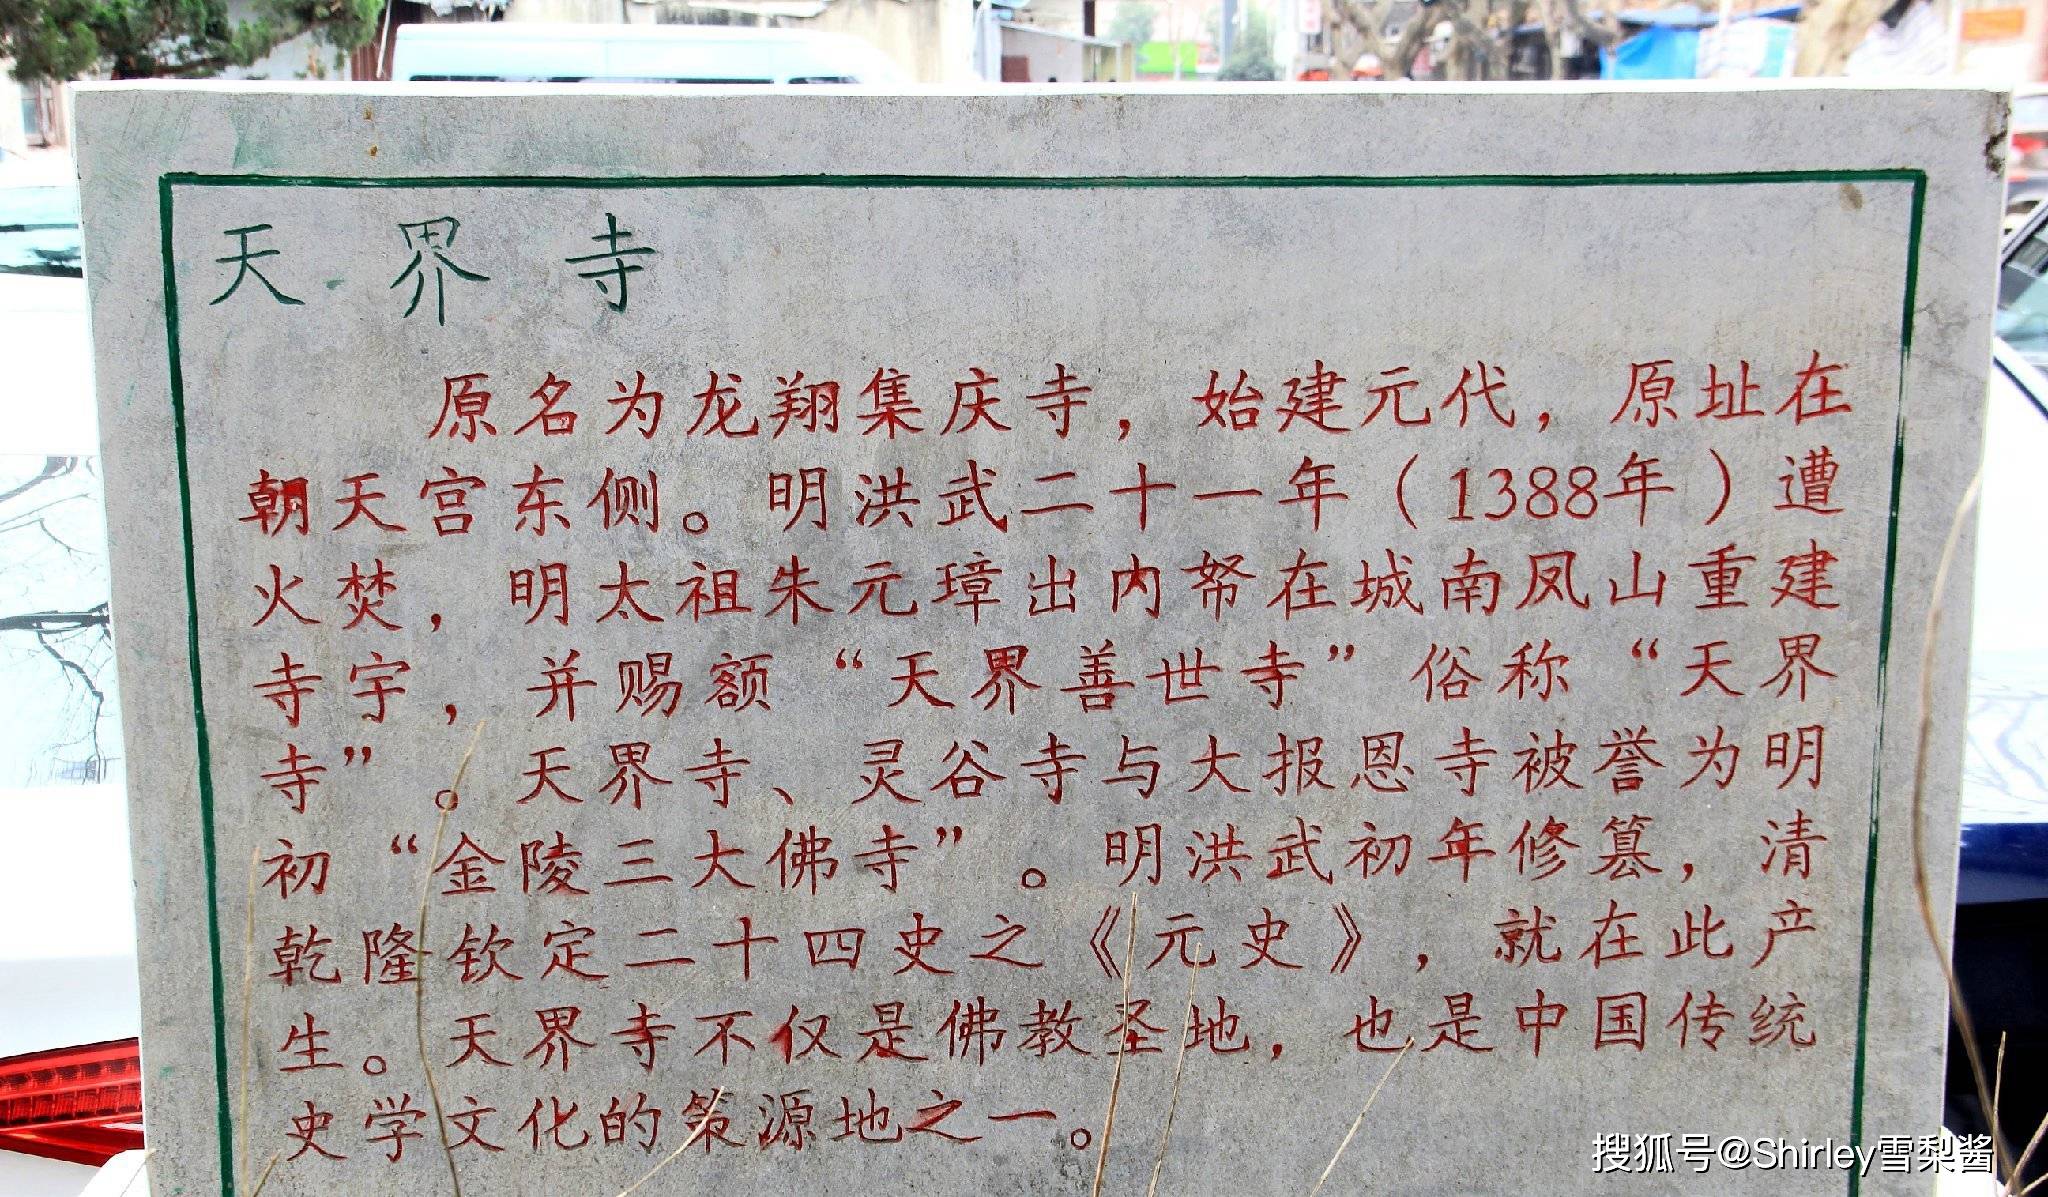 天界寺
原名为龙翔集庆寺，始建元代，原址在
朝天宫东侧。明洪武二十一年（1388年）遭
火焚，明太祖朱元璋出内帑在城南凤山重建
寺宇，并赐额“天界善世寺”俗称“天界
寺”。天界寺、灵谷寺与大报恩寺被誉为明
初“金陵三大佛寺”。明洪武初年修篡，清
乾隆钦定二十四史之《元史》，就在此产
生。天界寺不仅是佛教圣地，也是中国传统
史学文化的策源地之一。
搜狐号@Shirley雪梨酱